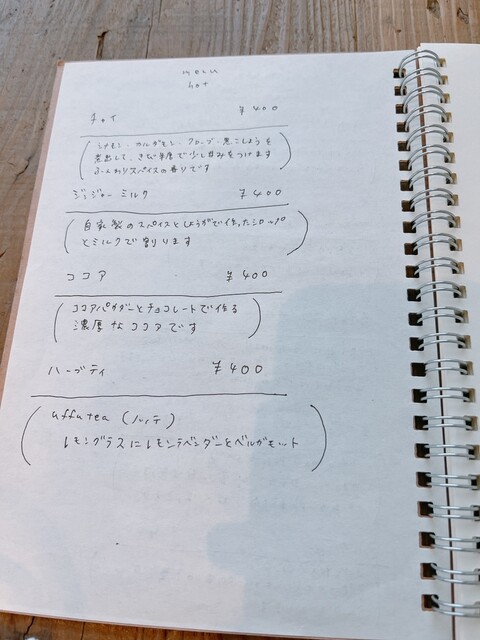 menu
hot
チャイ ¥400
シナモン・カルダモン・クローブ・黒こしょうを
煮出して、きび糖で少し甘みをつけます
ふんわりスパイスの香りです
ジンジャーミルク ¥400
自家製のスパイスとしょうがで作ったシロップ
とミルクで割ります
ココア ¥400
ココアパウダーとチョコレートで作る
濃厚なココアです
ハーブティ ¥400
uffu tea
レモングラスにレモンラベンダーとベルガモット